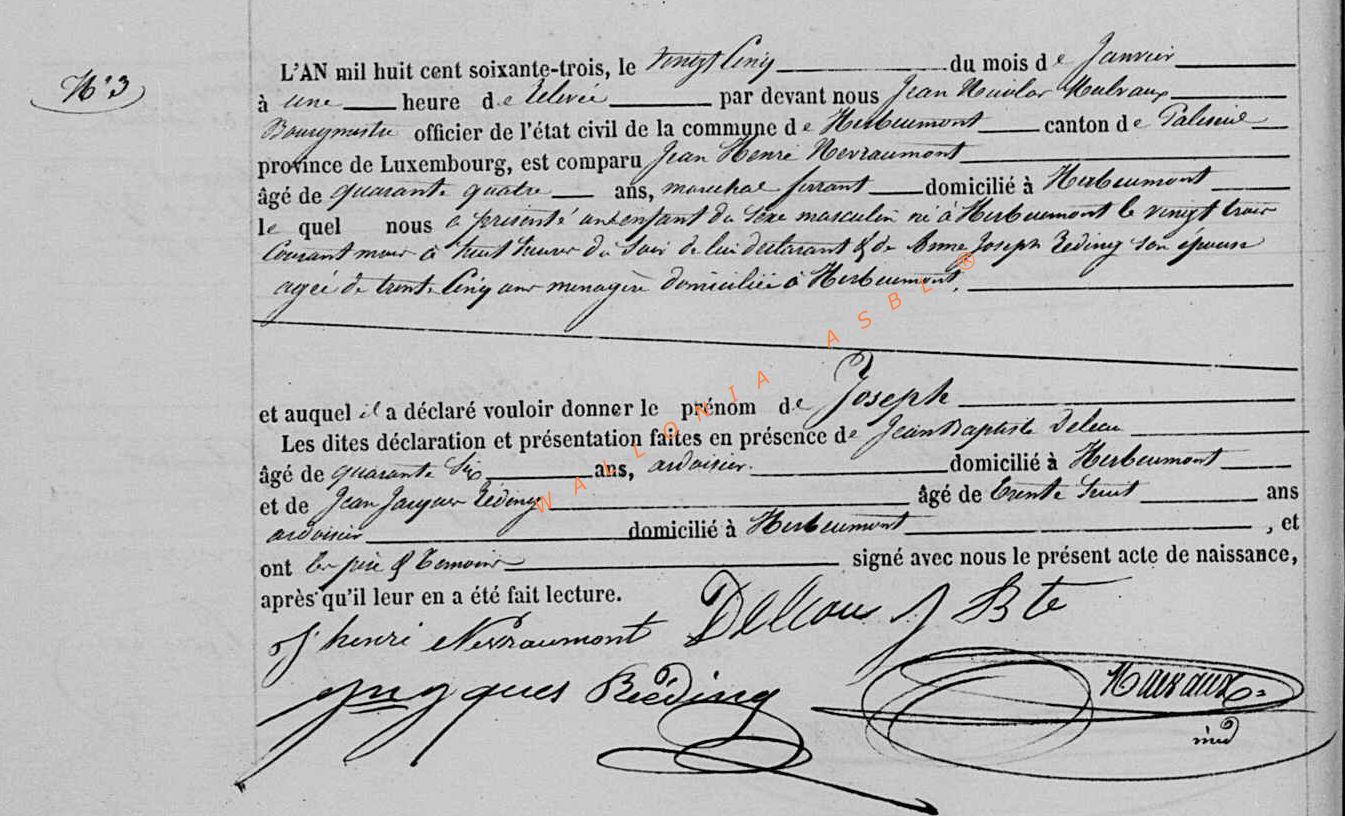 N° 3
L'AN mil huit cent soixante-trois, le vingt cinq du mois de Janvier
à une heure de relevée par devant nous Jean Nicolas
Bourgmestre officier de l'état civil de la commune de Herbeumont canton de Paliseul
province de Luxembourg, est comparu Jean Henri Nevraumont
âgé de quarante quatre ans, marechal ferrant domicilié à Herbeumont
le quel nous a présenté un enfant du sexe masculin né à Herbeumont le vingt trois
Courant mois à huit heures du soir de lui declarant & de Anne Joseph Reding son épouse
agée de trente cinq ans menagère domiciliée à Herbeumont,
et auquel il a déclaré vouloir donner le prénom de Joseph
Les dites déclaration et présentation faites en présence de Jean Baptiste
âgé de quarante six ans, ardoisier domicilié à Herbeumont
et de Jean Jacques Reding âgé de trente huit ans
ardoisier domicilié à Herbeumont, et
ont les père & temoins signé avec nous le présent acte de naissance,
après qu'il leur en a été fait lecture.
J henri Nevraumont J Bte
Reding
WALLONIA ASBL ®